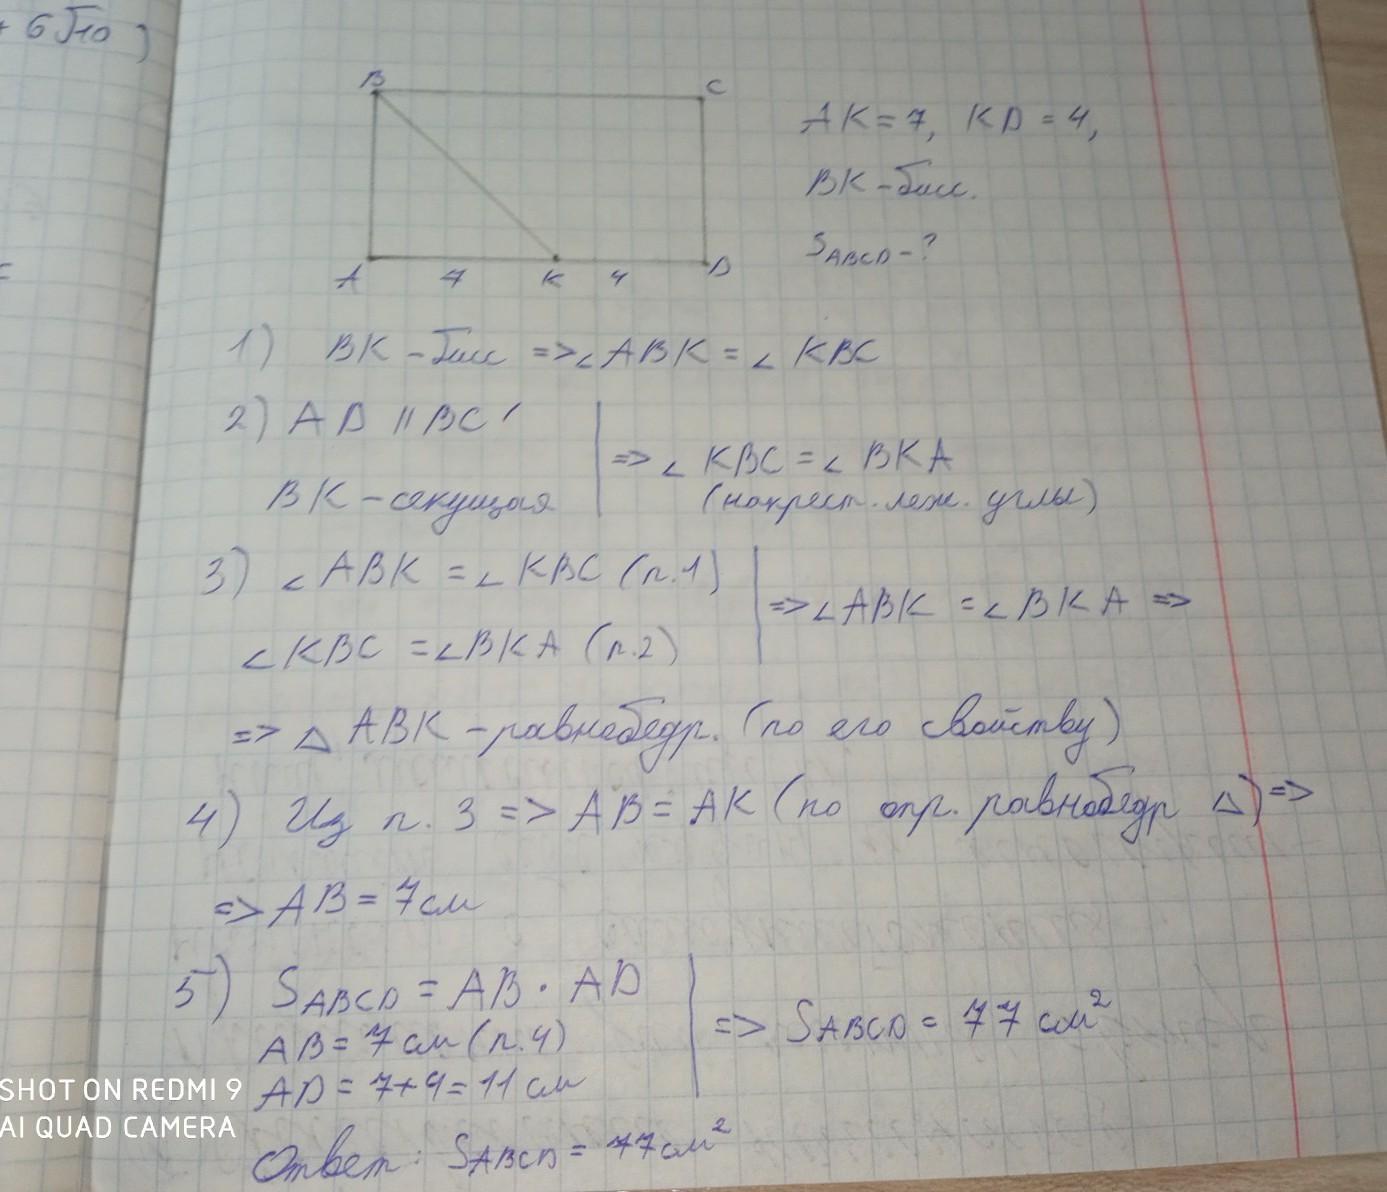 + 6√10 )
B
C
A
7
K
4
D
AK = 7, KD = 4,
BK - бисс.
S ABCD - ?
1) BK - бисс => ∠ABK = ∠KBC
2) AD || BC
BK - секущая
=> ∠KBC = ∠BKA
(накрест. леж. углы)
3) ∠ABK = ∠KBC (п.1)
∠KBC = ∠BKA (п.2)
=> ∠ABK = ∠BKA =>
=> △ABK - равнобедр. (по его свойству)
4) Из п. 3 => AB = AK (по опр. равнобедр △) =>
=> AB = 7 см
5) S ABCD = AB · AD
AB = 7 см (п.4)
AD = 7+4 = 11 см
=> S ABCD = 77 см²
Ответ: S ABCD = 77 см²
SHOT ON REDMI 9
AI QUAD CAMERA